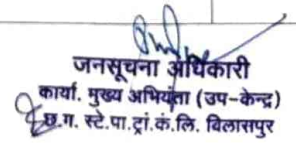 जनसूचना अधिकारी
कार्या. मुख्य अभियंता (उप-केन्द्र)
छ.ग. स्टे.पा.ट्रां.कं.लि. विलासपुर